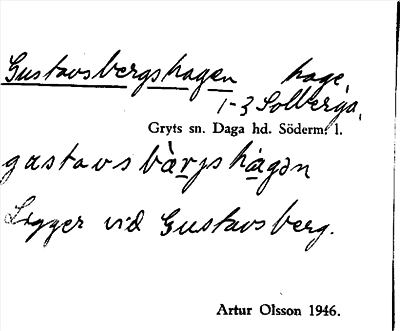 Gustavsbergshagen hage,
1-3 Solberga,
Gryts sn. Daga hd. Söderm. l.
gastavsbàrjshàgən
Ligger vid Gustavsberg.
Artur Olsson 1946.